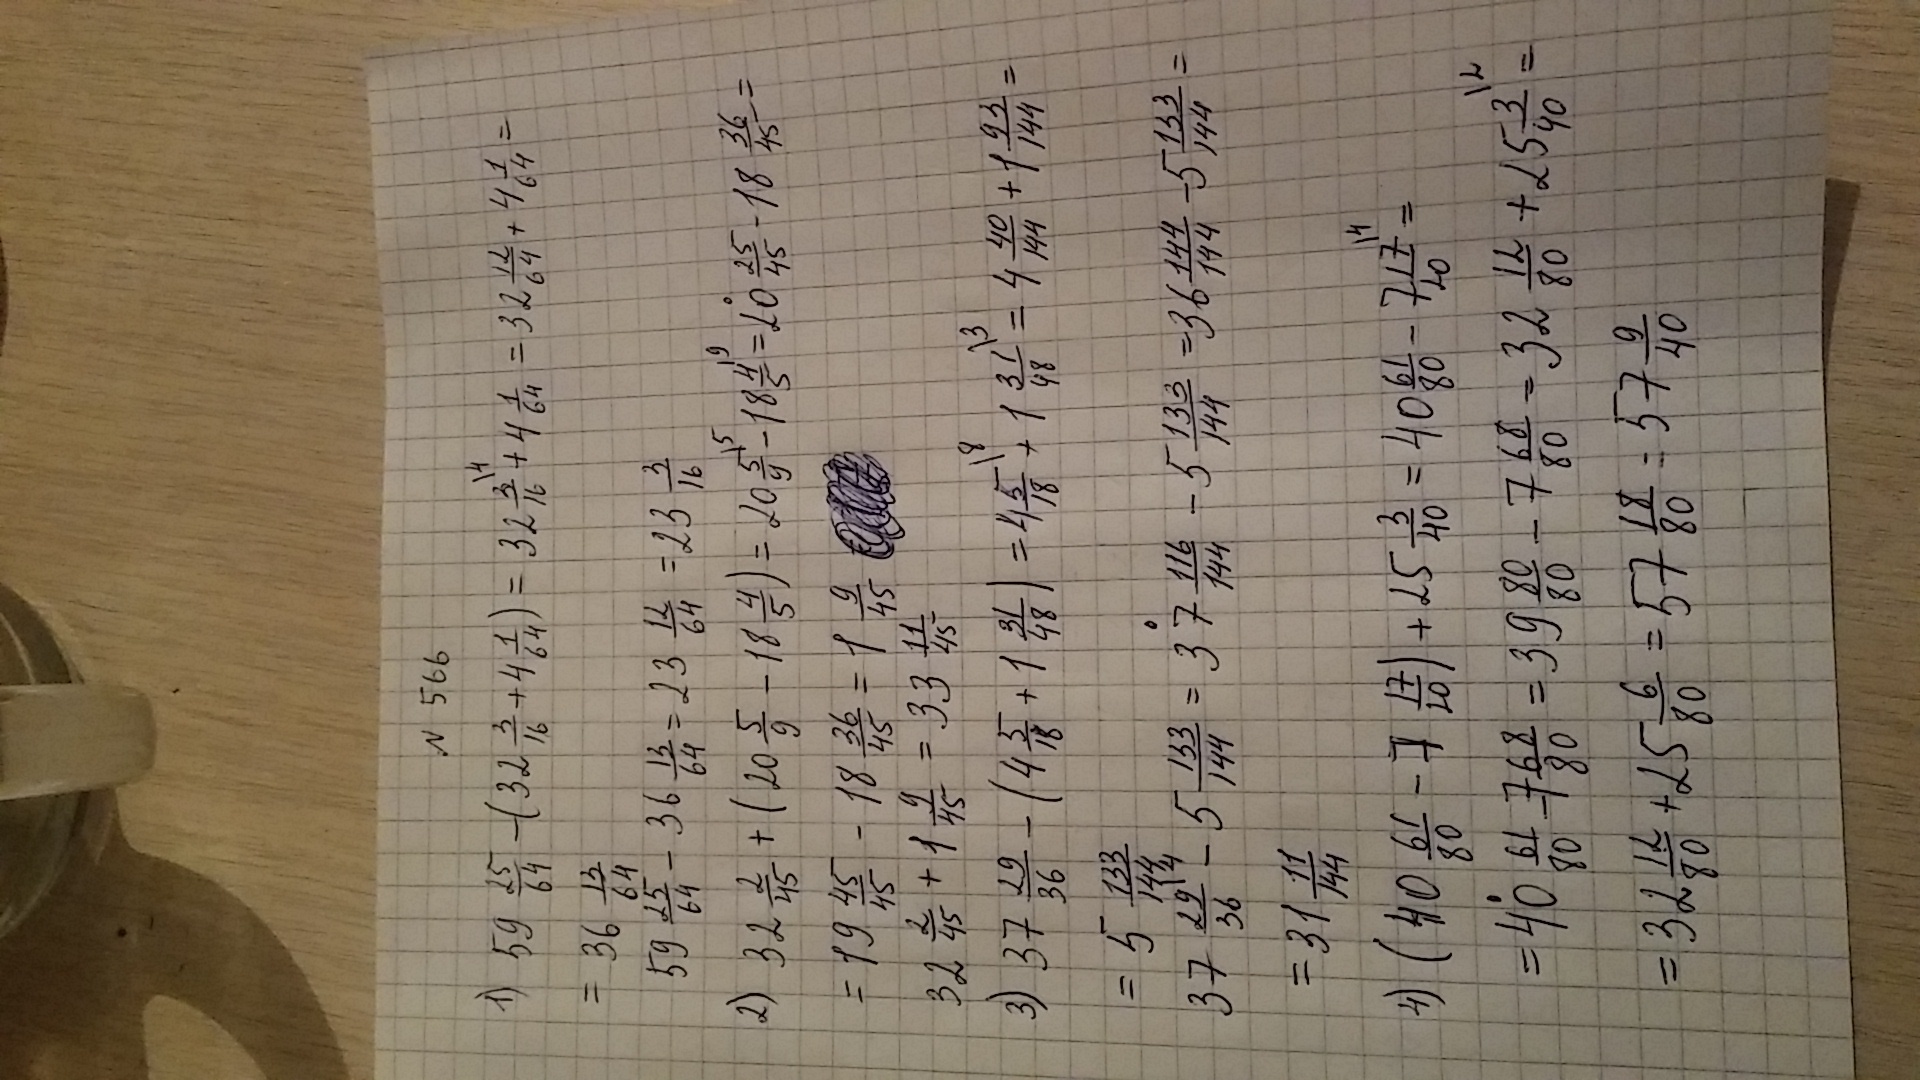 N 566
1) 59 25/64 - (32 3/16 + 4 1/64) = 32 3/16 \4 + 4 1/64 = 32 12/64 + 4 1/64 =
= 36 13/64
59 25/64 - 36 13/64 = 23 12/64 = 23 3/16
2) 32 2/45 + (20 5/9 - 18 4/5) = 20 5/9 \5 - 18 4/5 \9 = 20 25/45 - 18 36/45 =
= 19 45/45 - 18 36/45 = 1 9/45
32 2/45 + 1 9/45 = 33 11/45
3) 37 29/36 - (4 5/18 + 1 31/48) = 4 5/18 \8 + 1 31/48 \3 = 4 40/144 + 1 93/144 =
= 5 133/144
37 29/36 \4 - 5 133/144 = 37 116/144 - 5 133/144 = 36 144/144 - 5 133/144 =
= 31 11/144
4) (40 61/80 - 7 17/20) + 25 3/40 = 40 61/80 - 7 17/20 \4 =
= 40 61/80 - 7 68/80 = 39 80/80 - 7 68/80 = 32 12/80 + 25 3/40 \2 =
= 32 12/80 + 25 6/80 = 57 18/80 = 57 9/40